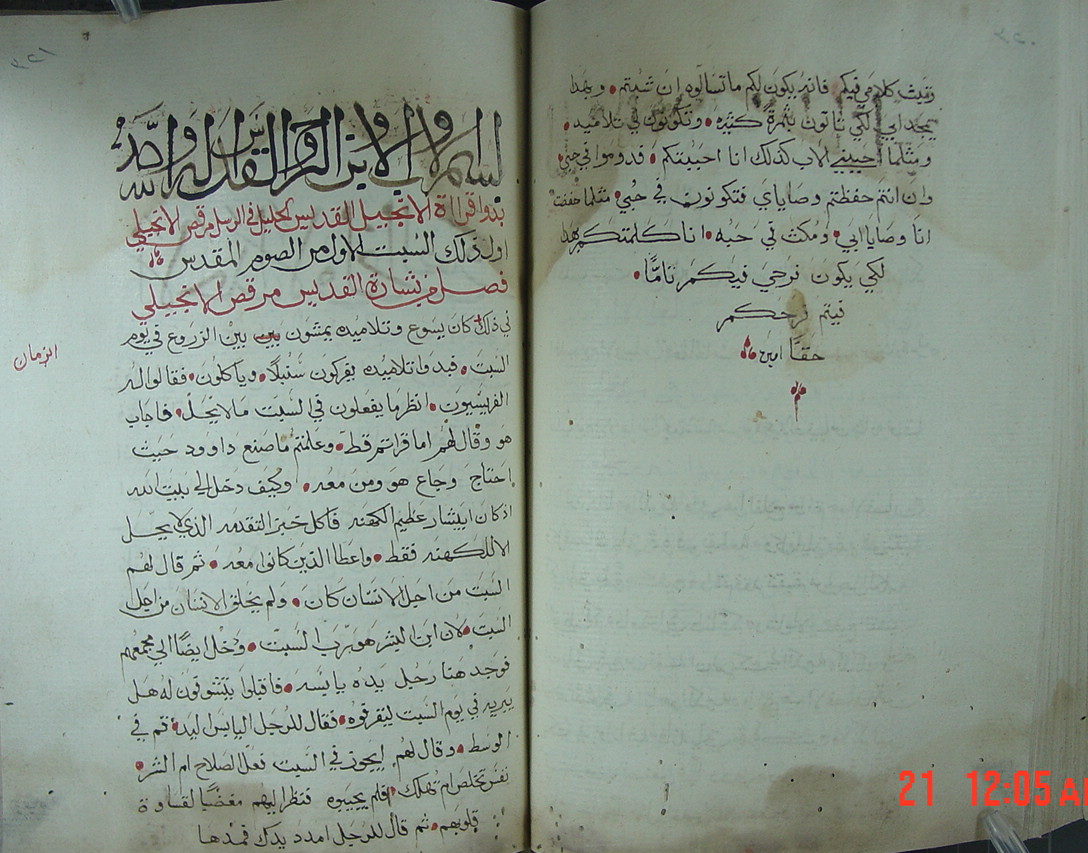 وثبت كلامي فيكم فانه يكون لكم ما تسالوه ان شيتم وبهذا
يمجد ابي لكي تاتون بثمرة كثيره وتكونون لي تلاميد
ومثلما احببني الاب كذلك انا احببتكم فدوموا في حبي
وان انتم حفظتم وصاياي فتكونون في حبي مثلما حفظت
انا وصايا ابي ومكثت في حبه انا كلمتكم بهذا
لكي يكون فرحي فيكم تامًا
فيتم فرحكم
حقًا امين
بسم الاب والابن والروح القدس اله واحد
بدو اقرااة الانجيل القديس الجليل في الرسل مرقص الانجيلي
اول ذلك السبت الاول من الصوم المقدس
فصل من بشارة القديس مرقص الانجيلي
في ذلك كان يسوع وتلاميده يمشون بين الزروع في يوم
الزمان
السبت فبدوا تلاميده يفركون سنبلًا وياكلون فقالوا له
الفريسيون انظر ما يفعلون في السبت ما لا يحل فاجاب
هو وقال لهم اما قراتم قط وعلمتم ما صنع داوود حيث
احتاج وجاع هو ومن معه وكيف دخل الى بيت الله
اذ كان ابيثار عظيم الكهنه فاكل خبز التقدمه الذي لا يحل
الا للكهنه فقط واعطا الذين كانوا معه ثم قال لهم
السبت من اجل الانسان كان ولم يخلق الانسان من اجل
السبت لان ابن البشر هو رب السبت ودخل ايضًا الى مجمعهم
فوجد هنا رجل يده يابسه فاقبلوا يتشوفون له هل
يبريه في يوم السبت ليقرفوه فقال للرجل اليابس اليد قم في
الوسط وقال لهم ايجوز في السبت فعل الصلاح ام الشر
نفس تخلص ام تهلك فلم يجيبوه فنظر اليهم مغضبًا لقساوة
قلوبهم ثم قال للرجل امدد يدك فمدها
21 12:05 A